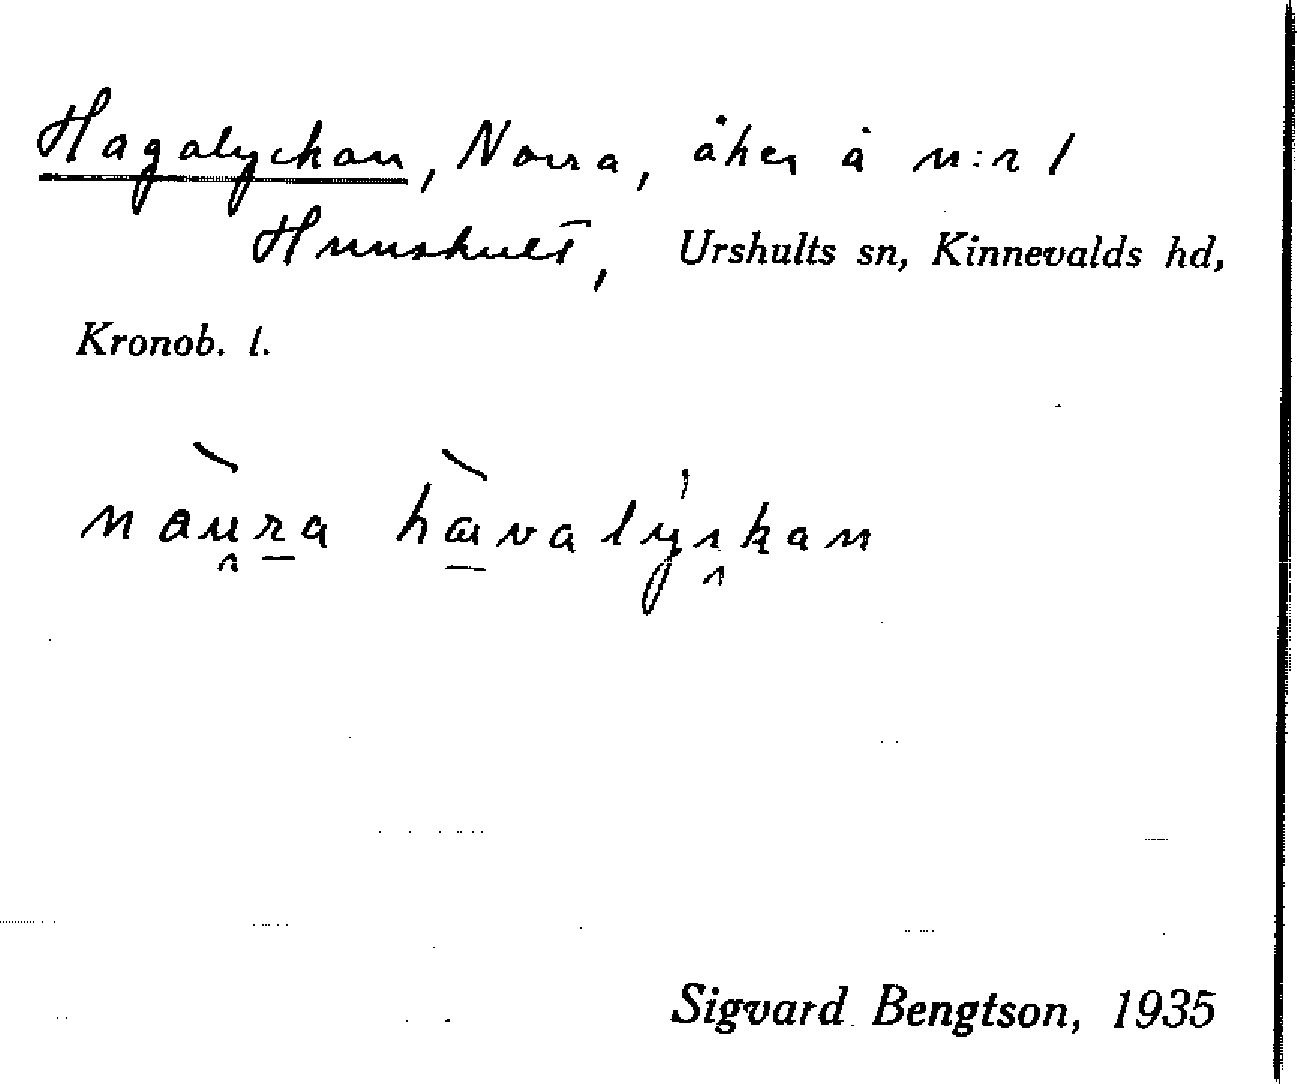 Hagalyckan, Norra, åker å n:r 1
Hunshult, Urshults sn, Kinnevalds hd,
Kronob. l.
Sigvard Bengtson, 1935